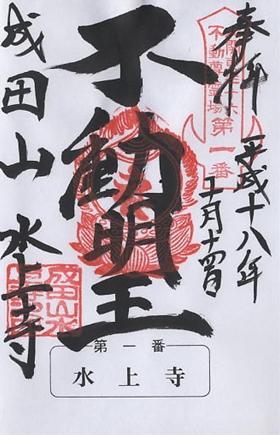 奉拝
平成十八年
不動尊霊場
第一番
不動明王
成田山 水上寺
成田山水
第一番
水上寺